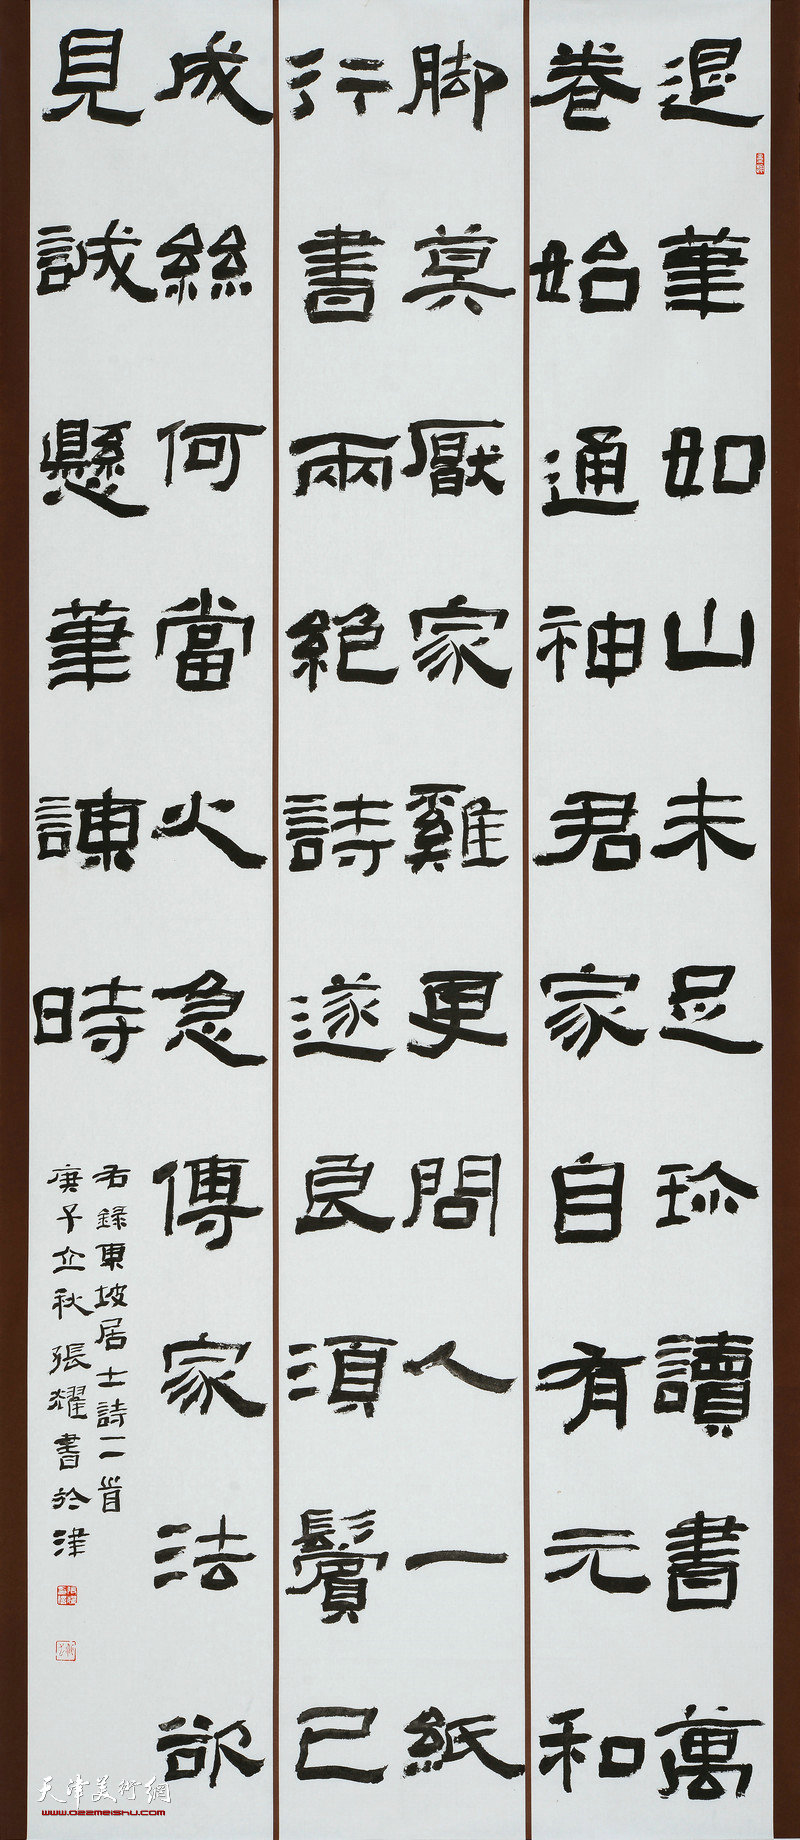 退筆如山未足珎讀書萬
卷始通神君家自有元和
脚莫厭家雞更問人一紙
行書兩絕詩遂良須鬢已
成絲何當火急傳家法欲
見誠懸筆諫時
右錄東坡居士詩二首
庚子立秋張耀書於津
天津美術網
www.022meishu.com